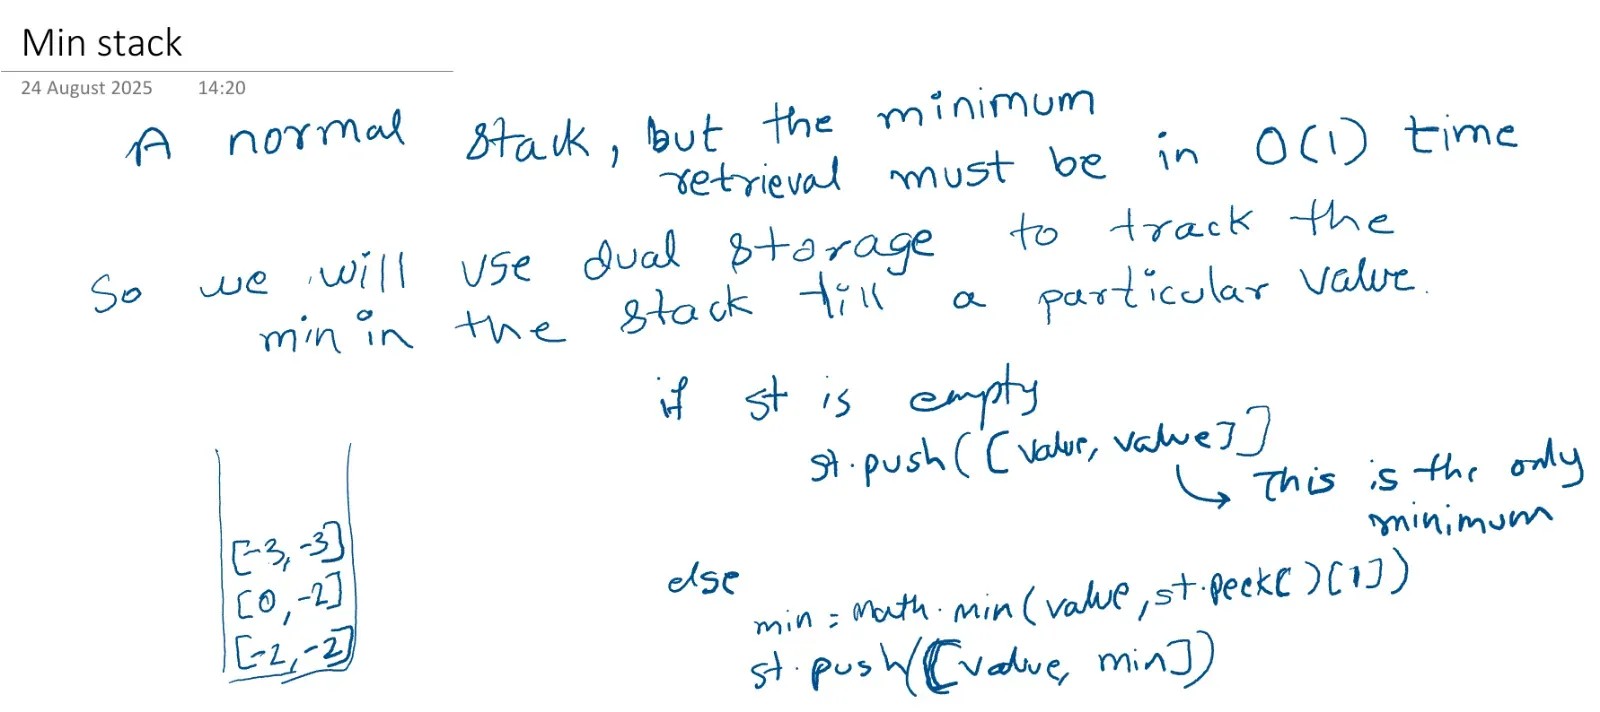 Min stack
24 August 2025 14:20
A normal stack, but the minimum
retrieval must be in O(1) time
So we will use dual storage to track the
min in the stack till a particular value.
if st is empty
st.push([value, value]]
This is the only
minimum
[-3, -3]
[0, -2]
[-2, -2]
else
min = Math.min(value, st.peek()[1])
st.push([value, min])